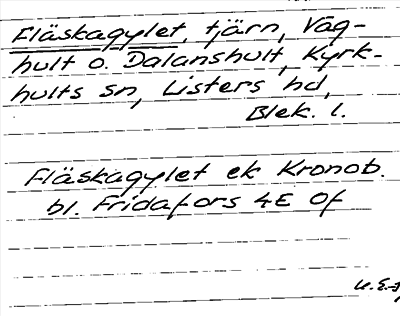 Fläskagylet, tjärn, Våg-
hult o. Dalanshult, Kyrk-
hults sn, Listers hd,
Blek. l.
Fläskagylet ek Kronob.
bl. Fridafors 4E 0f